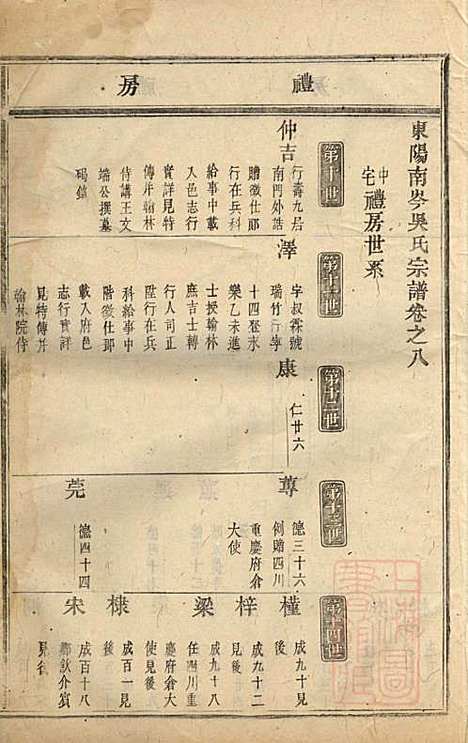 禮房
東陽南岑吳氏宗譜卷之八
中宅禮房世系
第十一世
第十二世
第十三世
第十四世
仲吉
行壽九居
南門外誥
贈徵仕郎
行在兵科
給事中載
入邑志行
實詳見特
傳并翰林
侍講王文
端公撰墓
碣銘
澤
字叔霖號
瑞竹行寧
十四登永
樂乙未進
士授翰林
庶吉士轉
行人司正
陞行在兵
科給事中
階徵仕郎
載入府邑
志行實詳
見特傳并
翰林院侍
康
仁廿六
蓴
德三十六
例贈四川
重慶府倉
大使
莞
德四十四
橦
成九十見
後
梓
成九十二
見後
梁
成九十八
任四川重
慶府倉大
使見後
棣
成百一見
後
宋
成百十八
鄉飲介賓
見後